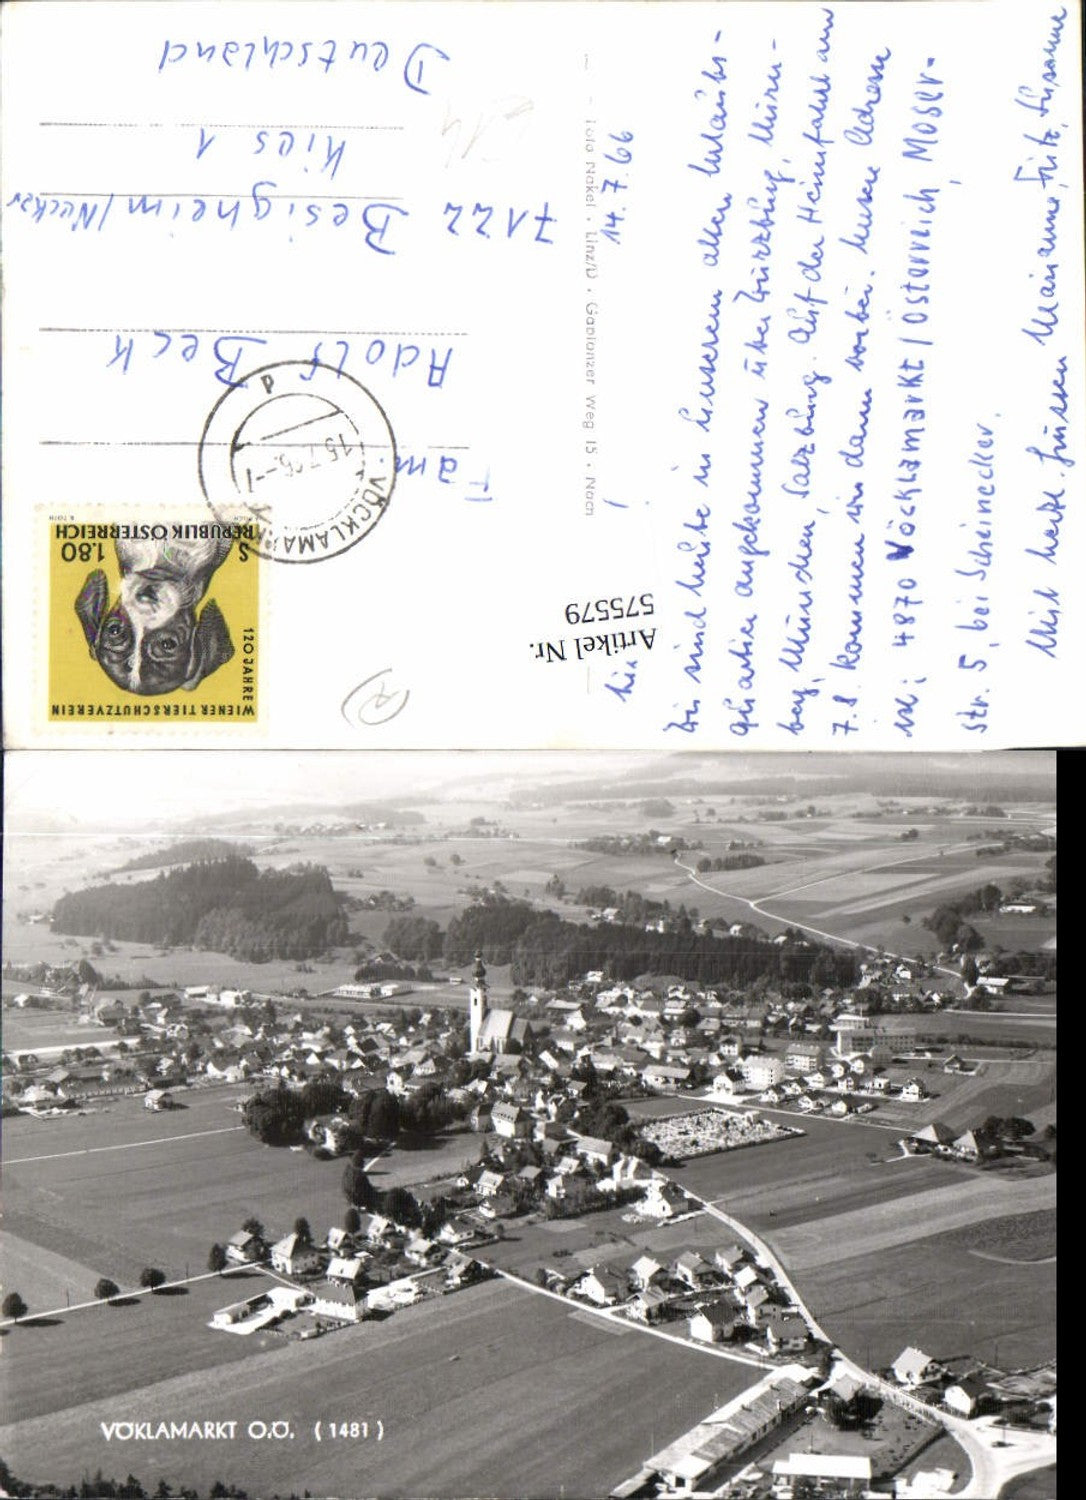 14.7.66
Wir sind heute in unserem alten Urlaubs-
quartier angekommen über Würzburg, Nürn-
berg, München, Salzburg. Auf der Heimfahrt am
7.8. kommen wir dann vorbei. Unsere Adresse
ist: 4870 Vöcklamarkt / Österreich, Moser-
str. 5, bei Scheinecker.
Mit herzl. Grüssen Marianne, Fritz, Susanne
Foto Nakel · Linz/D · Gablonzer Weg 15 · Nach
Artikel Nr.
575579
WIENER TIERSCHUTZVEREIN
120 JAHRE
S 1.80
REPUBLIK ÖSTERREICH
VÖCKLAMARKT
Fam.
Adolf Beck
7122 Besigheim/Neckar
Kies 1
Deutschland
VÖKLAMARKT O.Ö. (1481)